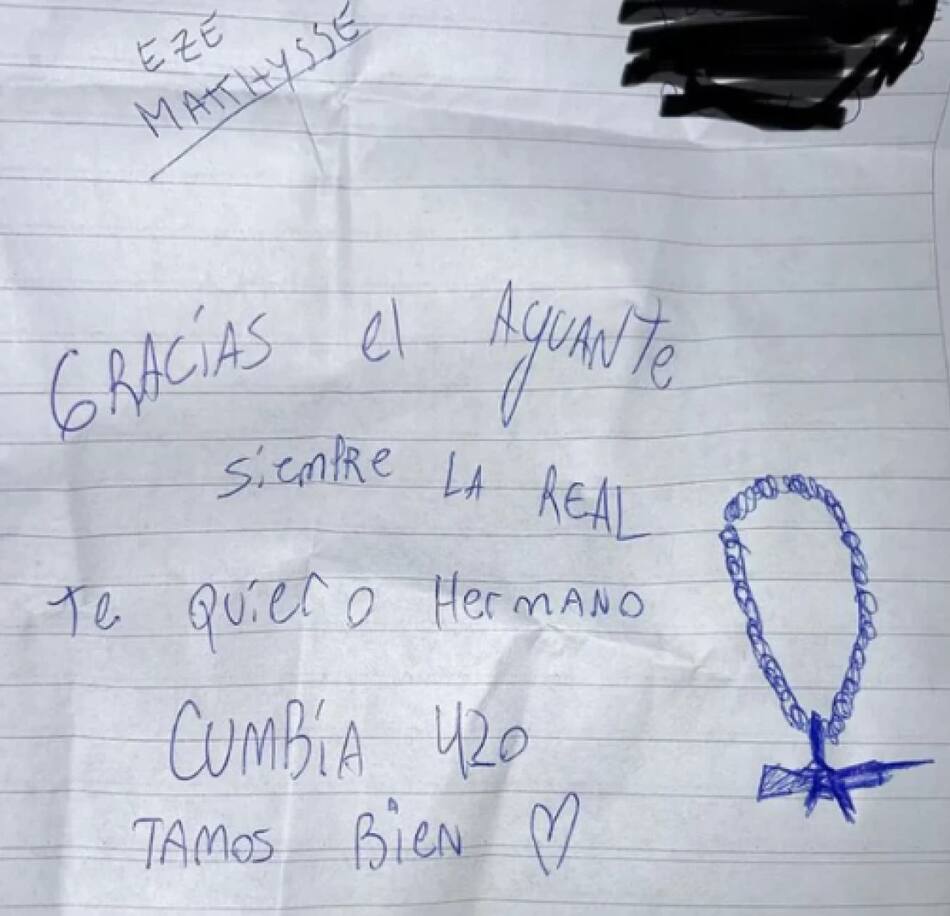 EZE
MATTHYSSE
GRACÍAS el AGUANTE
siempre LA REAL
Te quiero HerMANO
CUMBÍA 420
TAMOS BIEN